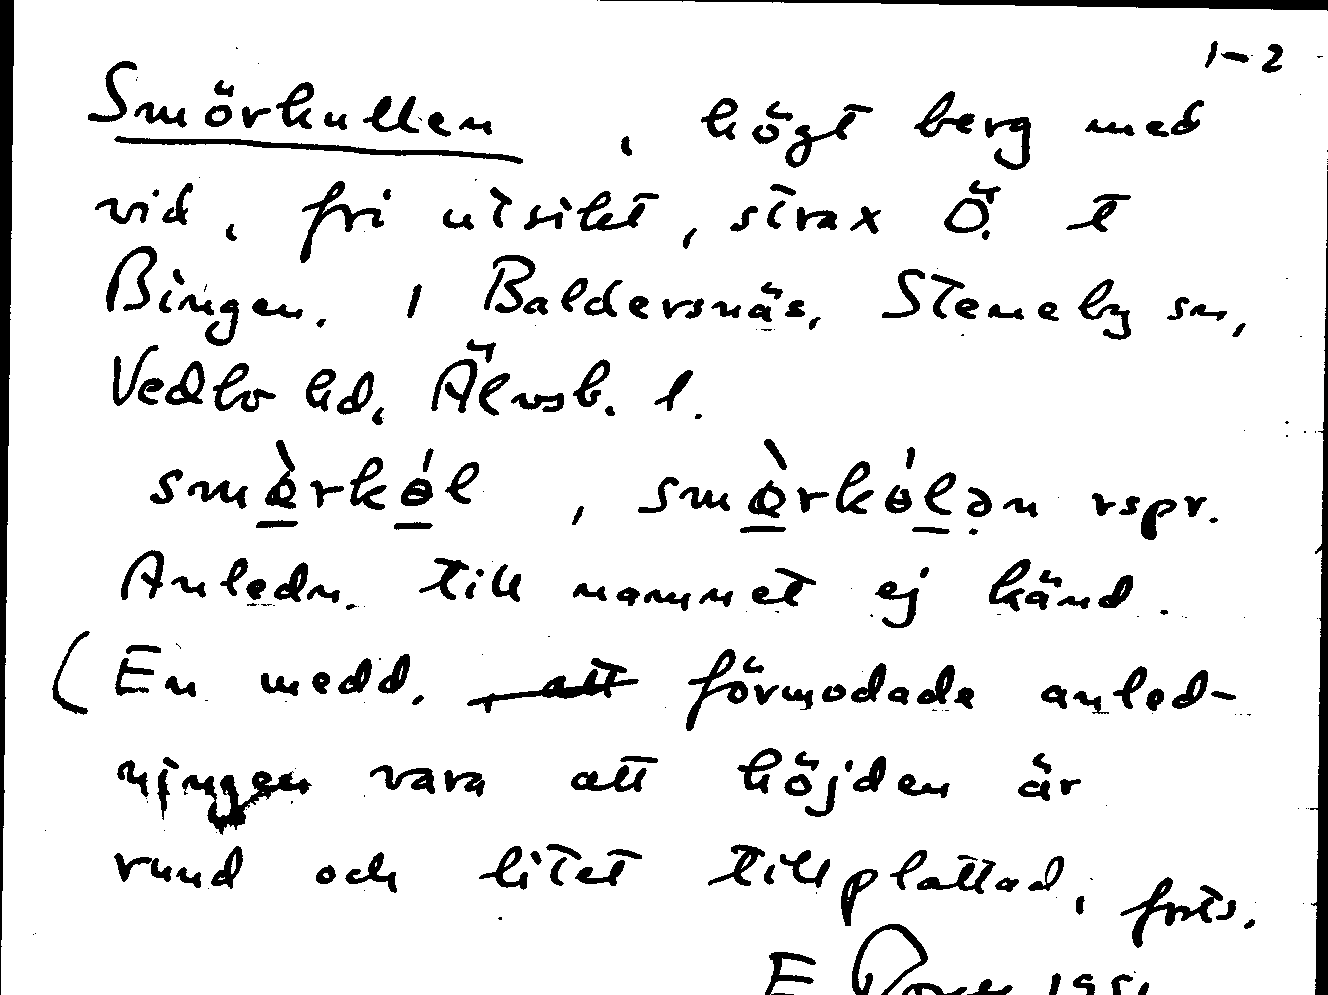 1-2
Smörkullen, högt berg med
vid, fri utsikt, strax Ö. t
Bingen. 1 Baldersnäs, Steneby sn,
Vedbo hd, Älvsb. l.
smø̀rkól, smø̀rkólən rspr.
Anledn. till namnet ej känd.
(En medd. förmodade anled-
ningen vara att höjden är
rund och litet tillplattad, forts.
E